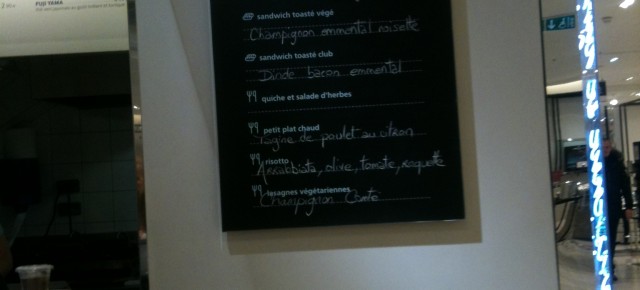 FUJI YAMA
sandwich toasté végé
Champignon emmental noisette
sandwich toasté club
Dinde bacon emmental
quiche et salade d'herbes
petit plat chaud
Tagine de poulet au citron
risotto
Arrabbiata, olive, tomate, roquette
lasagnes végétariennes
Champignon Comté